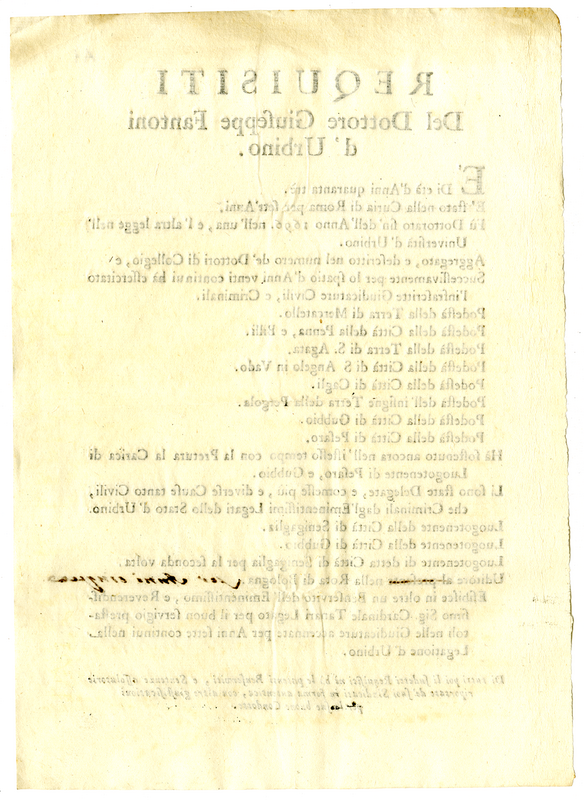 REQUISITI
Del Dottore Giuseppe Fantoni
d'Urbino.
E' Di età d'Anni quaranta trè.
E' stato nella Curia di Roma per sete'Anni,
Fù Dottorato sin'dell'Anno 1696. nell'una, e l'altra legge nell'
Università d'Urbino.
Aggregato, e descritto nel numero de' Dottori di Collegio, e
Successivamente per lo spatio d'Anni venti continui hà essercitato
l'infrascritte Giudicature Civili, e Criminali.
Podestà della Terra di Mercatello.
Podestà della Città della Penna, e Billi.
Podestà della Terra di S. Agata.
Podestà della Città di S Angelo in Vado.
Podestà della Città di Cagli.
Podestà dell'insigne Terra della Pergola.
Podestà della Città di Gubbio.
Podestà della Città di Pesaro.
Hà sostenuto ancora nell'istesso tempo con la Pretura la Carica di
Luogotenente di Pesaro, e Gubbio.
Li sono state Delegate, e comesse più, e diverse Cause tanto Civili,
che Criminali dagl'Eminentissimi Legati dello Stato d'Urbino.
Luogotenente della Città di Senigaglia.
Luogotenente della Città di Gubbio.
Luogotenente di detta Città di Senigaglia per la seconda volta.
Uditore nella Rota di Bologna per Anni cinque
Essibisce in oltre un Benservito dell'Eminentissimo, e Reverendis-
simo Sig. Cardinale Tanari Legato per il buon servigio presta-
toli nelle Giudicature accennate per Anni sette continui nella
Legatione d'Urbino.
Di tutti poi li sudetti Requisiti ne hà le patenti, Benserviti, e Sentenze assolutorie
riportate da suoi Sindicati in forma autentica, oltre altre giustificationi
per le sue buone Condotte.